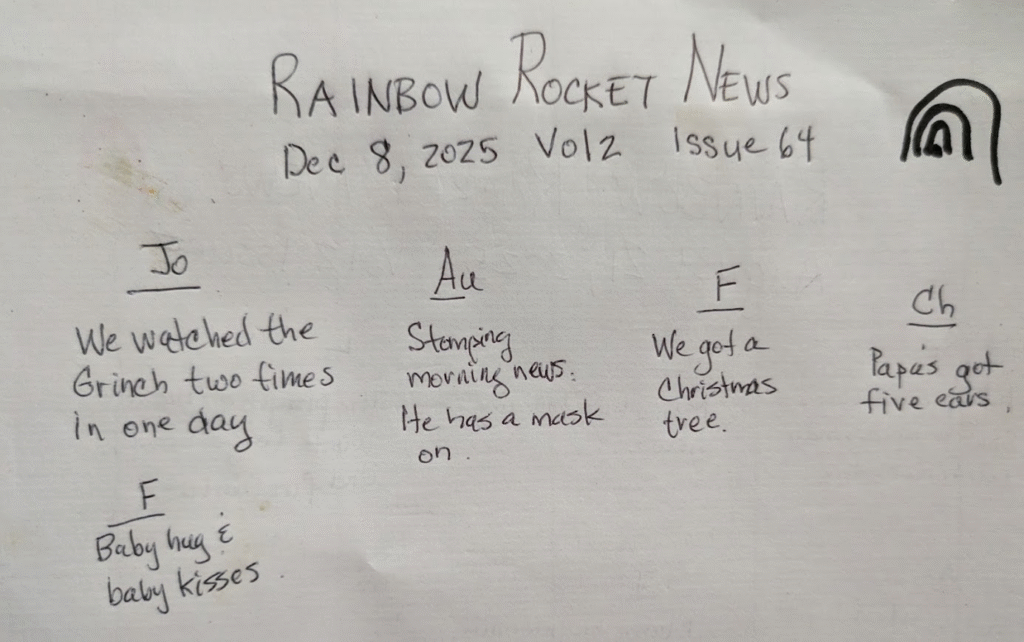 RAINBOW ROCKET NEWS
Dec 8, 2025 Vol 2 Issue 64
Jo
We watched the
Grinch two times
in one day
Au
Stomping
morning news.
He has a mask
on.
F
We got a
Christmas
tree.
Ch
Papa's got
five ears.
F
Baby hug &
baby kisses.